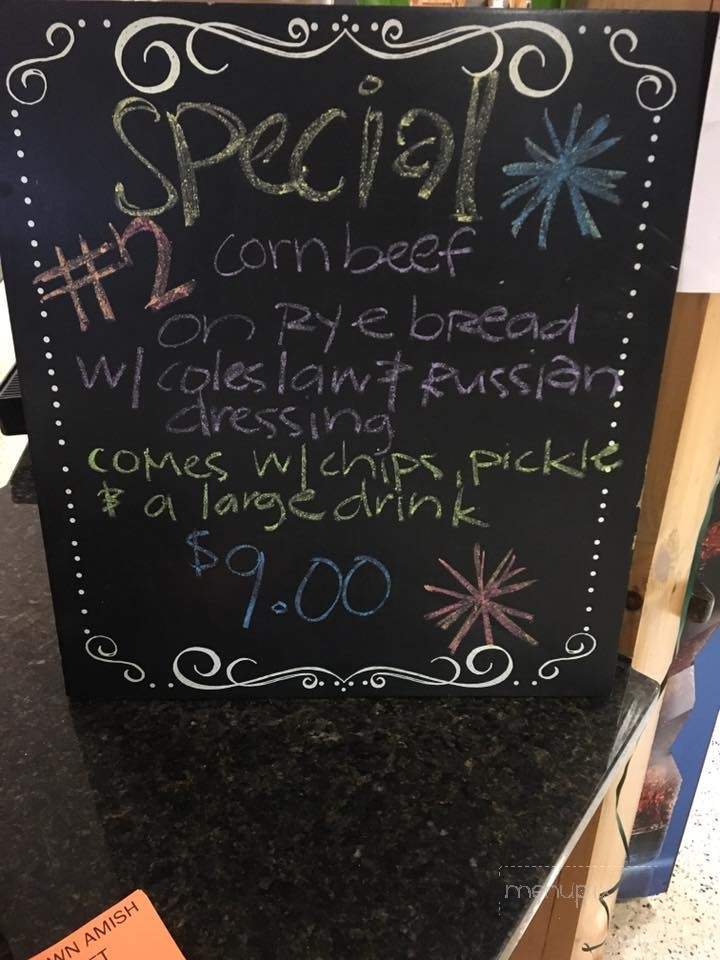 special
#2 corn beef
on Rye bread
w/ coleslaw & Russian
dressing
comes w/ chips, pickle
& a large drink
$9.00
WN AMISH
ET
menupix